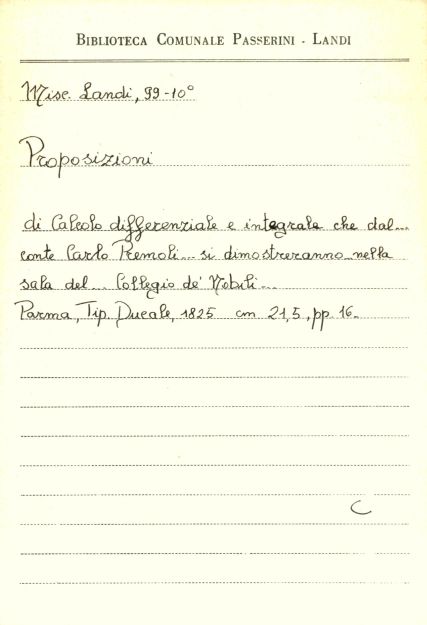 BIBLIOTECA COMUNALE PASSERINI - LANDI
Misc. Landi, 99-10°
Proposizioni
di Calcolo differenziale e integrale che dal...
conte Carlo Premoli... si dimostreranno nella
sala del... Collegio de' Nobili...
Parma, Tip. Ducale, 1825 cm 21,5, pp 16.
C